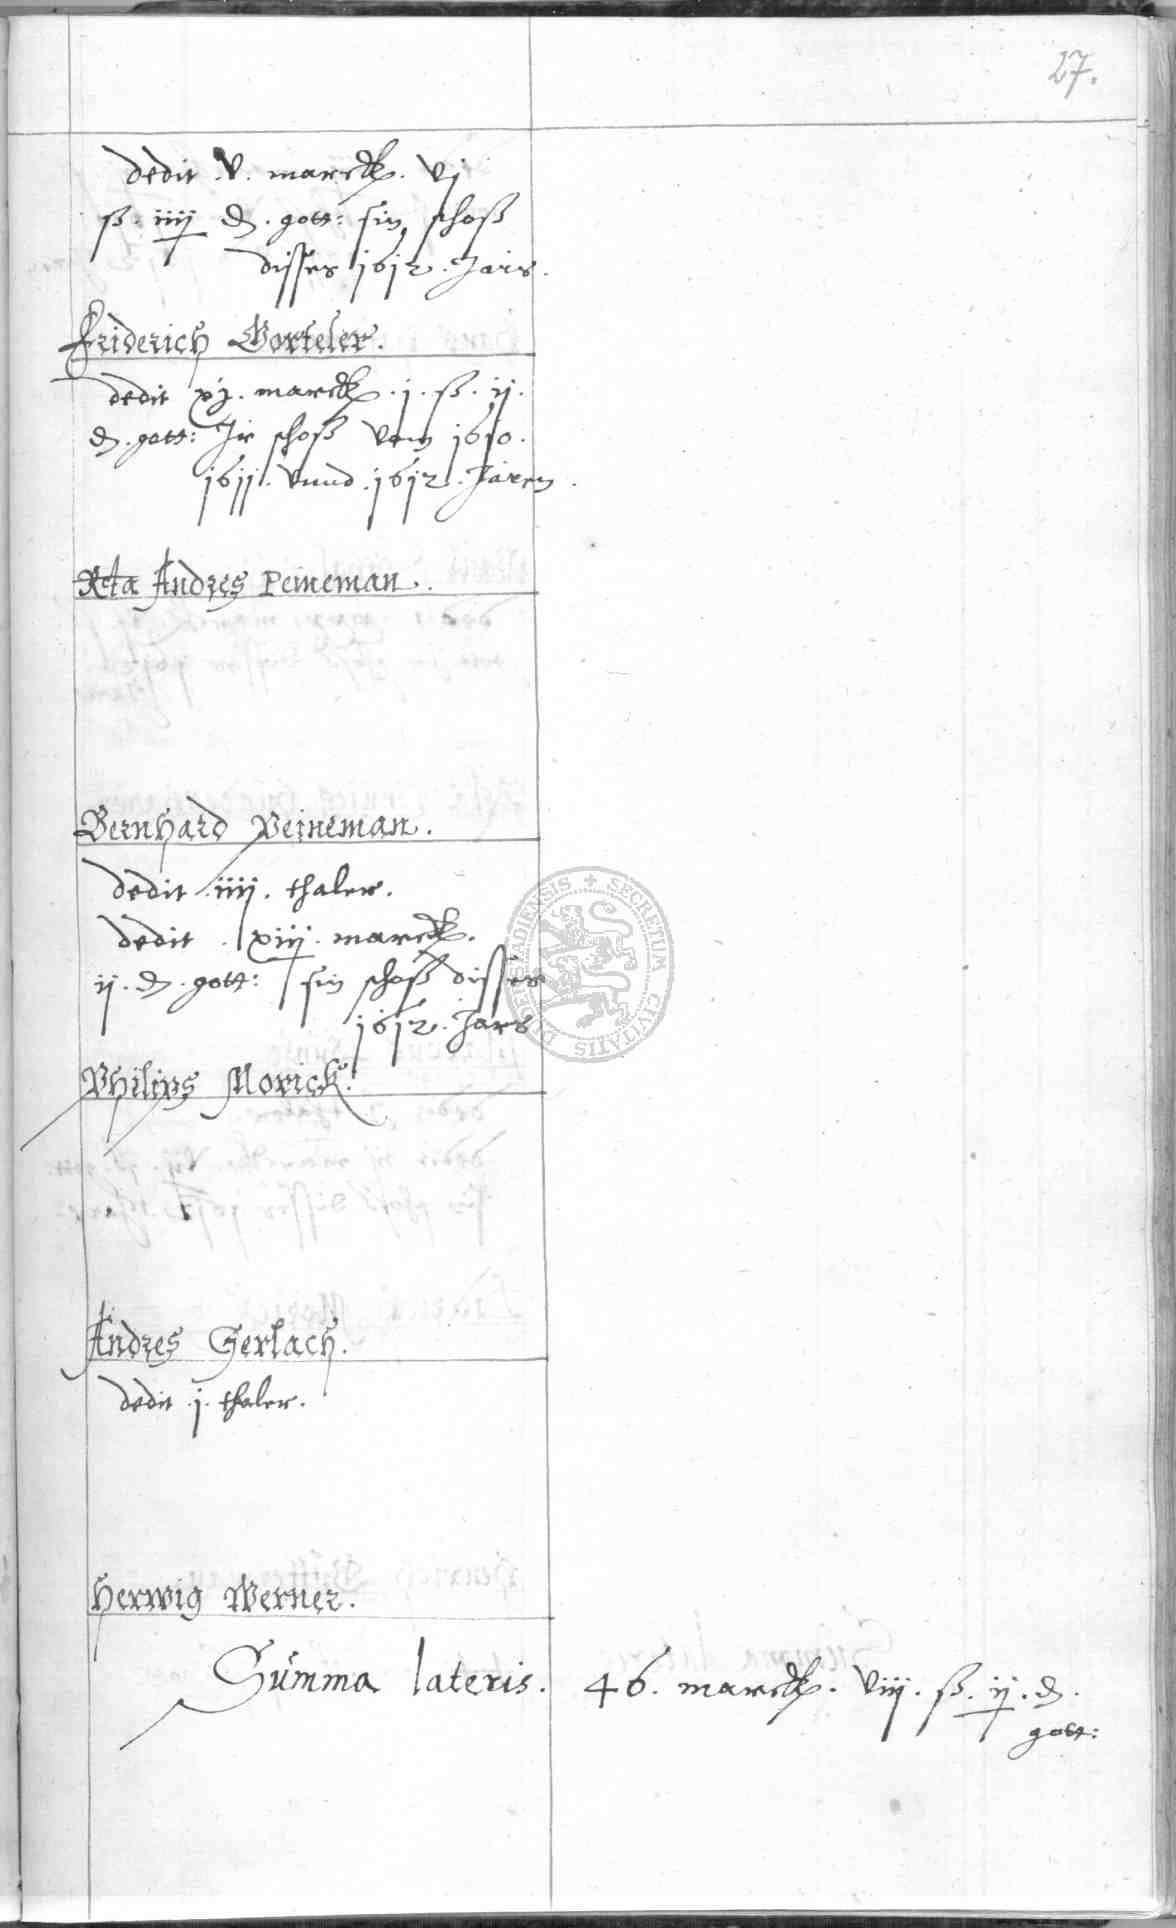 27.
dedit .v. marck. vj
ß. iiij ₰. gott: sin schoß
disses 1612. Jars.
Friderich Gorteler.
dedit xj. marck. j. ß. ij.
₰. gott: Ir schoß vom 1610.
1611. vnnd .1612. Jaren.
Rta Andres Peineman.
Bernhard Peineman.
dedit .iiij. thaler.
dedit . xiij. marck.
ij. ₰. gott: sin schoß disses
1612. Jars
Philips Morick.
Andres Gerlach.
dedit .j. thaler.
Herwig Werner.
Summa lateris. 46. marck. viij. ß. ij. ₰.
gott:
SECRETUM CIVITATIS